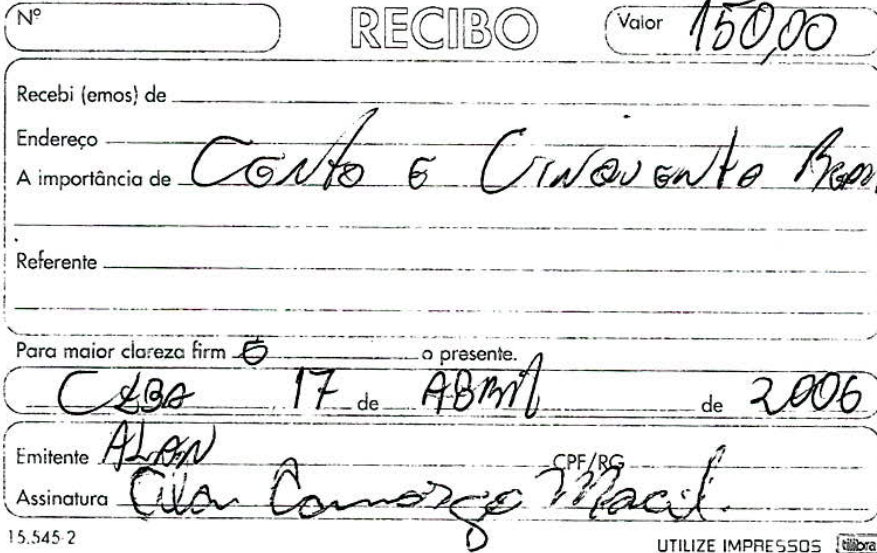 Nº RECIBO Valor 150,00
Recebi (emos) de
Endereço
A importância de Cento e Cinquenta Reais
Referente
Para maior clareza firm o o presente.
17 de ABRIL de 2006
Emitente ALAN
CPF/RG
Assinatura Alan Camargo Maciel
15.545-2 UTILIZE IMPRESSOS tilibra